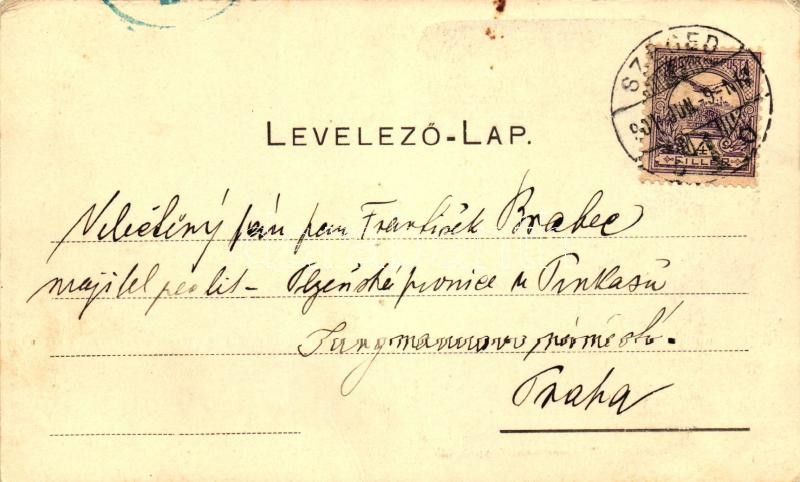 SZEGED
901 JUN
MAGYAR KIR. POSTA
4
FILLÉR
LEVELEZŐ-LAP.
Veléctěný pán pan František Brabec
majitel realit - Plzeňské pivnice u Pinkasů
Jungmannovo náměstí.
Praha